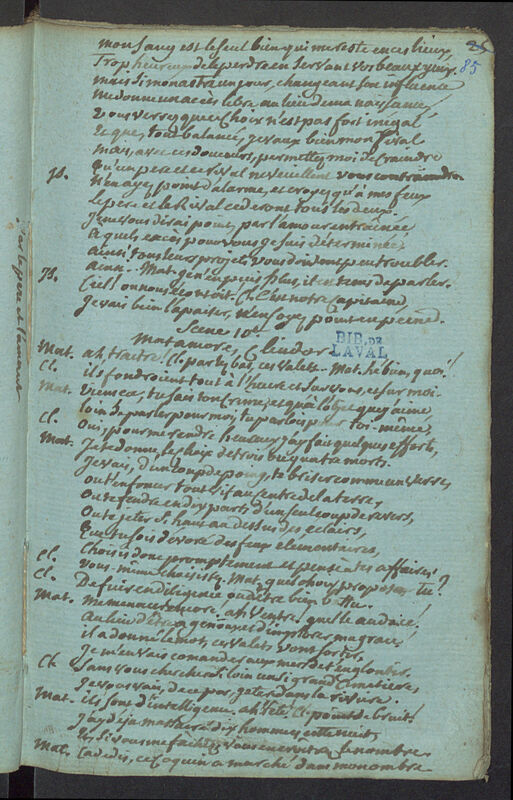 85
mon sang est le seul bien qui me reste en ces lieux,
Trop heureux de le perdre en servant vos beaux yeux.
mais si mon astre un jour, changeant son influence
me donne un accès libre au lieu de ma naissance,
Vous verrez que ce choix n'est pas fort inegal
Et que, tout balancé, je vaux bien mon Rival
Mais, avec ces douceurs, permettez moi de craindre
Qu'un pere et ce rival ne veuillent vous contraindre
Is. N'en ayez point d'alarme, et croyez qu'à mes feux
Le pere et le Rival cederont tous les deux.
Je ne vous dirai point, par l'amour entrainée
A quels excès pour vous je suis determinée
Ainsi tous leurs projets
Mat. je n'en puis plus, il est tems de parler.
Is. Ciel! on nous écoutoit. Cl. C'est notre Capitaine,
Je vais bien l'apaiser, n'en soyez point en peine.
Scene 10e
Matamore, Clindor
BIB. DE
LAVAL
Mat. ah, traitre! Cl. parlez bas, ces valets. Mat. hé bien, quoi!
Cl. ils fondroient tout à l'heure et sur vous, et sur moi.
Mat. Viens ça, tu sais ton crime, et qu'à l'objet que j'aime
loin de parler pour moi, tu parlois pour toi-même,
Cl. Oui, pour me rendre heureux j'ai fait quelques efforts,
Mat. Je te donne le choix de trois ou quatre morts.
Je vais, d'un coup de poing, te briser comme un verre,
Ou t'enfoncer tout vif au centre de la terre,
Ou te fendre en dix parts d'un seul coup de revers,
Ou te jeter si haut au dessus des éclairs,
Que tu sois dévoré des feux élémentaires,
Choisis donc promptement et pense à tes affaires!
Cl. Vous-même choisissez. Mat. quel choix proposes-tu?
Cl. De fuir en diligence ou d'être bien battu.
Mat. Me menacer encore, ah, Ventre, quelle audace!
Au lieu d'être à genoux et d'implorer ma grace!
il a donné le mot, ces valets vont sortir,
Je m'en vais comander aux mers de t'engloutir.
Cl. Sans vous chercher si loin un si grand Cimetière,
Je vous vais, de ce pas, jeter dans la riviere.
Mat. ils sont d'intelligence, ah, tête! Cl. point de bruit!
J'ai deja massacré dix hommes cette nuit,
Et si vous me fachez vous en croitrez le nombre.
Mat. Cadedis, ce coquin a marché dans mon ombre